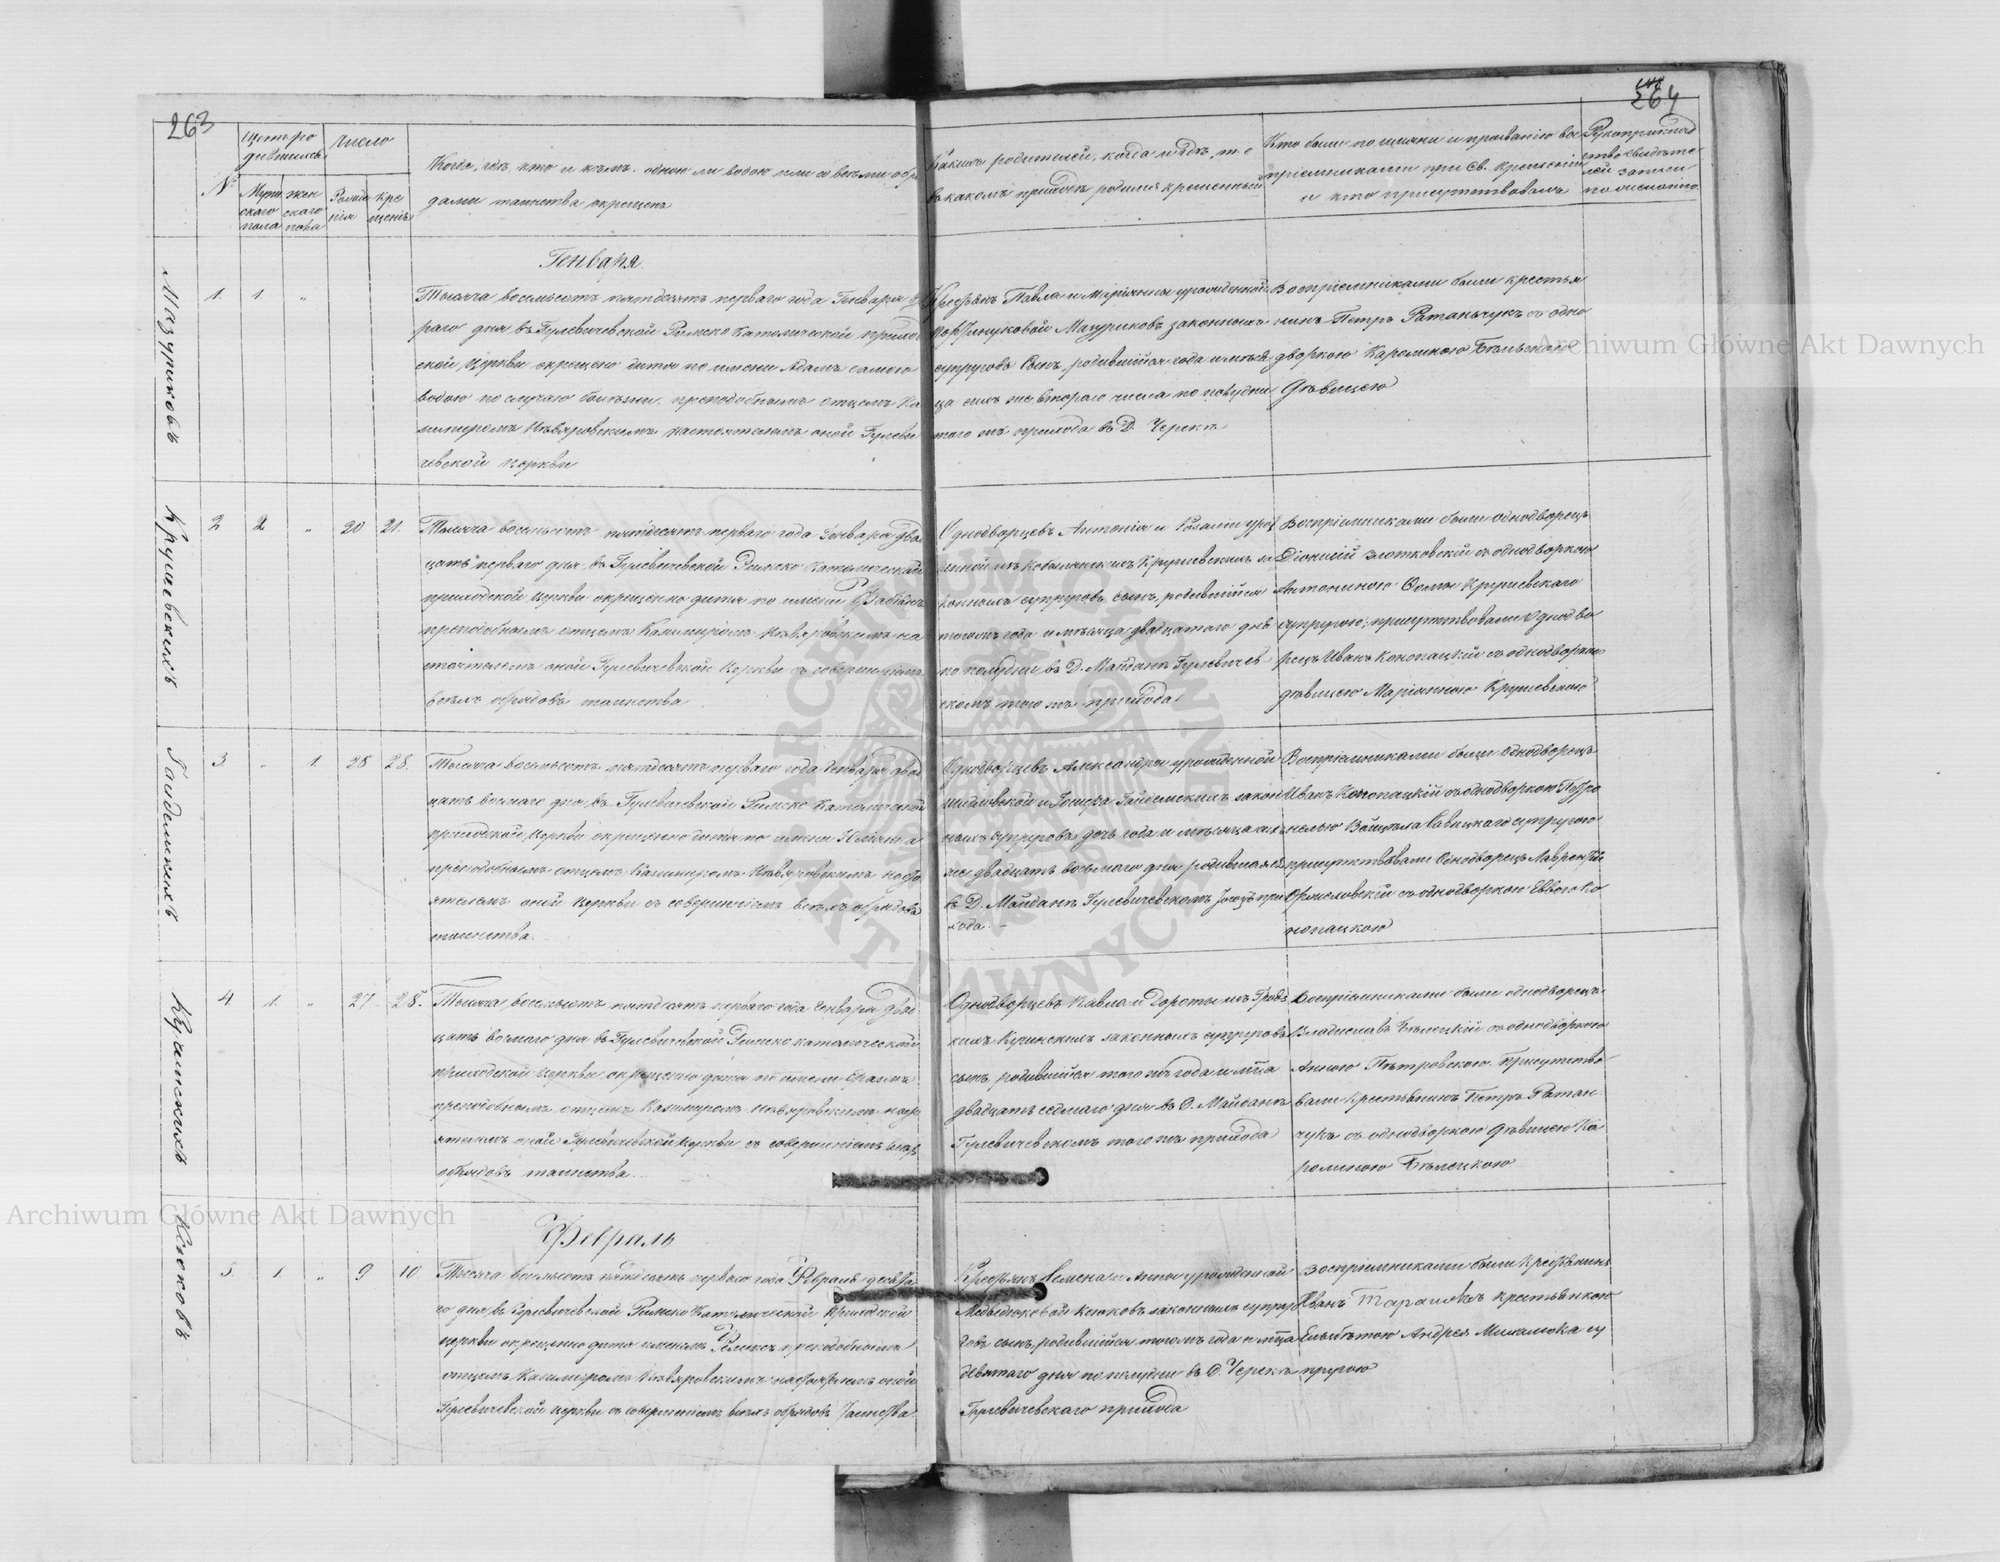 263
264
№
Щетъ ро
дившихся
Муже
скаго
пола
Жен
скаго
пола
Число
Рожде
нія
Кре
щенія
Когда, гдѣ, кто и кѣмъ, одною ли водою или со всѣми обря
дами таинства окрещенъ
Какихъ родителей, когда и гдѣ, т. е.
въ какомъ приходѣ родился крещенный
Кто были по имени и прозванію вос
пріемниками при Св. Крещеніи
и кто присутствовалъ
Рукоприклад
ство свидѣте
лей записи
по желанію
Генваря
Мазуриковъ
1. 1. „
Тысяча восемьсотъ пятдесятъ перваго года Генваря вто
раго дня въ Гулевичевской Римско Католической приход
ской Церкви окрещено дитя по имени Адамъ самою
водою по случаю болѣзни преподобнымъ отцемъ Ка
зимиромъ Невяровскимъ настоятелемъ оной Гулеви
чевской церкви
Крестьянъ Павла и Маріянны урожденной
Мазуриковъ законныхъ
супруговъ Сынъ, родившійся года и мѣся
ца сихъ же втораго числа по полудни
того же прихода въ Д. Черекъ
Воспріемниками были крестья
нинъ Петръ Ратаньчукъ съ одно
дворкою Каролиною Бѣльскою
Дѣвицею
Крушевскихъ
2 2 „ 20 21.
Тысяча восемьсотъ пятдесятъ перваго года Генваря два
цать перваго дня въ Гулевичевской Римско Католической
приходской церкви окрещено дитя по имени Фабіанъ
преподобнымъ отцемъ Казимиромъ Невяровскимъ на
стоятелемъ оной Гулевичевской Церкви съ совершеніемъ
всѣхъ обрядовъ таинства
Однодворцевъ Антонія и Розаліи урож
денной изъ Крушевскихъ за
конныхъ супруговъ сынъ, родившійся
тогожъ года и мѣсяца двадцатаго дня
по полудни въ Д. Майданѣ Гулевичев
скомъ того жъ прихода
Воспріемниками были однодворецъ
Діонисій Злотковскій съ однодворкою
Антониною Фомы Крушевскаго
супругою; присутствовали Однодво
рецъ Иванъ Конопацкій съ однодворкою
дѣвицею Маріянною Крушевскою
Гайдемскихъ
3 „ 1. 28 28.
Тысяча восемьсотъ пятдесятъ перваго года Генваря двад
цать восмаго дня въ Гулевичевской Римско Католической
приходской Церкви окрещено дитя по имени
преподобнымъ отцемъ Казимиромъ Невяровскимъ насто
ятелемъ оной Церкви съ совершеніемъ всѣхъ обрядовъ
таинства.
Однодворцевъ Александры урожденной
и Іосифа Гайдемскихъ закон
ныхъ супруговъ дочь года и мѣсяца сихъ
же двадцать восьмаго дня родившаяся
въ Д. Майданѣ Гулевичевскомъ тогожъ при
хода. —
Воспріемниками были Однодворецъ
Иванъ Конопацкій съ однодворкою Петро
нелью Войцѣха Савицкаго супругою
присутствовали Однодворецъ Лаврентій
съ однодворкою Еввою Ко
нопацкою
Кучинскихъ
4 1. „ 27 28.
Тысяча восемьсотъ пятдесятъ перваго года Генваря двад
цать восмаго дня въ Гулевичевской Римско Католической
приходской церкви окрещено дитя по имени
преподобнымъ отцемъ Казимиромъ Невяровскимъ насто
ятелемъ оной Гулевичевской Церкви съ совершеніемъ всѣхъ
обрядовъ таинства.
Однодворцевъ Павла и Дороты изъ
Кучинскихъ законныхъ супруговъ
сынъ, родившійся того жъ года и мѣсяца
двадцать седмаго дня въ Д. Майданѣ
Гулевичевскомъ того жъ прихода
Воспріемниками были однодворецъ
Владиславъ Бѣлецкій съ однодворкою
Анною Петровскою. Присутство
вали крестьянинъ Петръ Ратан
чукъ съ однодворкою дѣвицею Ка
ролиною Бѣлецкою
Февраль
Клюковъ
5. 1. „ 9 10
Тысяча восемьсотъ пятдесятъ перваго года Февраля десята
го дня въ Гулевичевской Римско Католической Приходской
церкви окрещено дитя именемъ Феликсъ преподобнымъ
отцемъ Казимиромъ Невяровскимъ настоятелемъ оной
Гулевичевской церкви съ совершеніемъ всѣхъ обрядовъ Таинства.
Крестьянъ Семена и Анны урожденной
законныхъ супру
говъ сынъ, родившійся тогожъ года и мѣсяца
девятаго дня по полудни въ Д. Черекъ
Гулевичевскаго прихода
Воспріемниками были Крестьянинъ
Иванъ съ крестьянкою
Елисаветою Андрея Михалюка су
пругою
Archiwum Główne Akt Dawnych
Archiwum Główne Akt Dawnych
ARCHIWUM GŁÓWNE AKT DAWNYCH